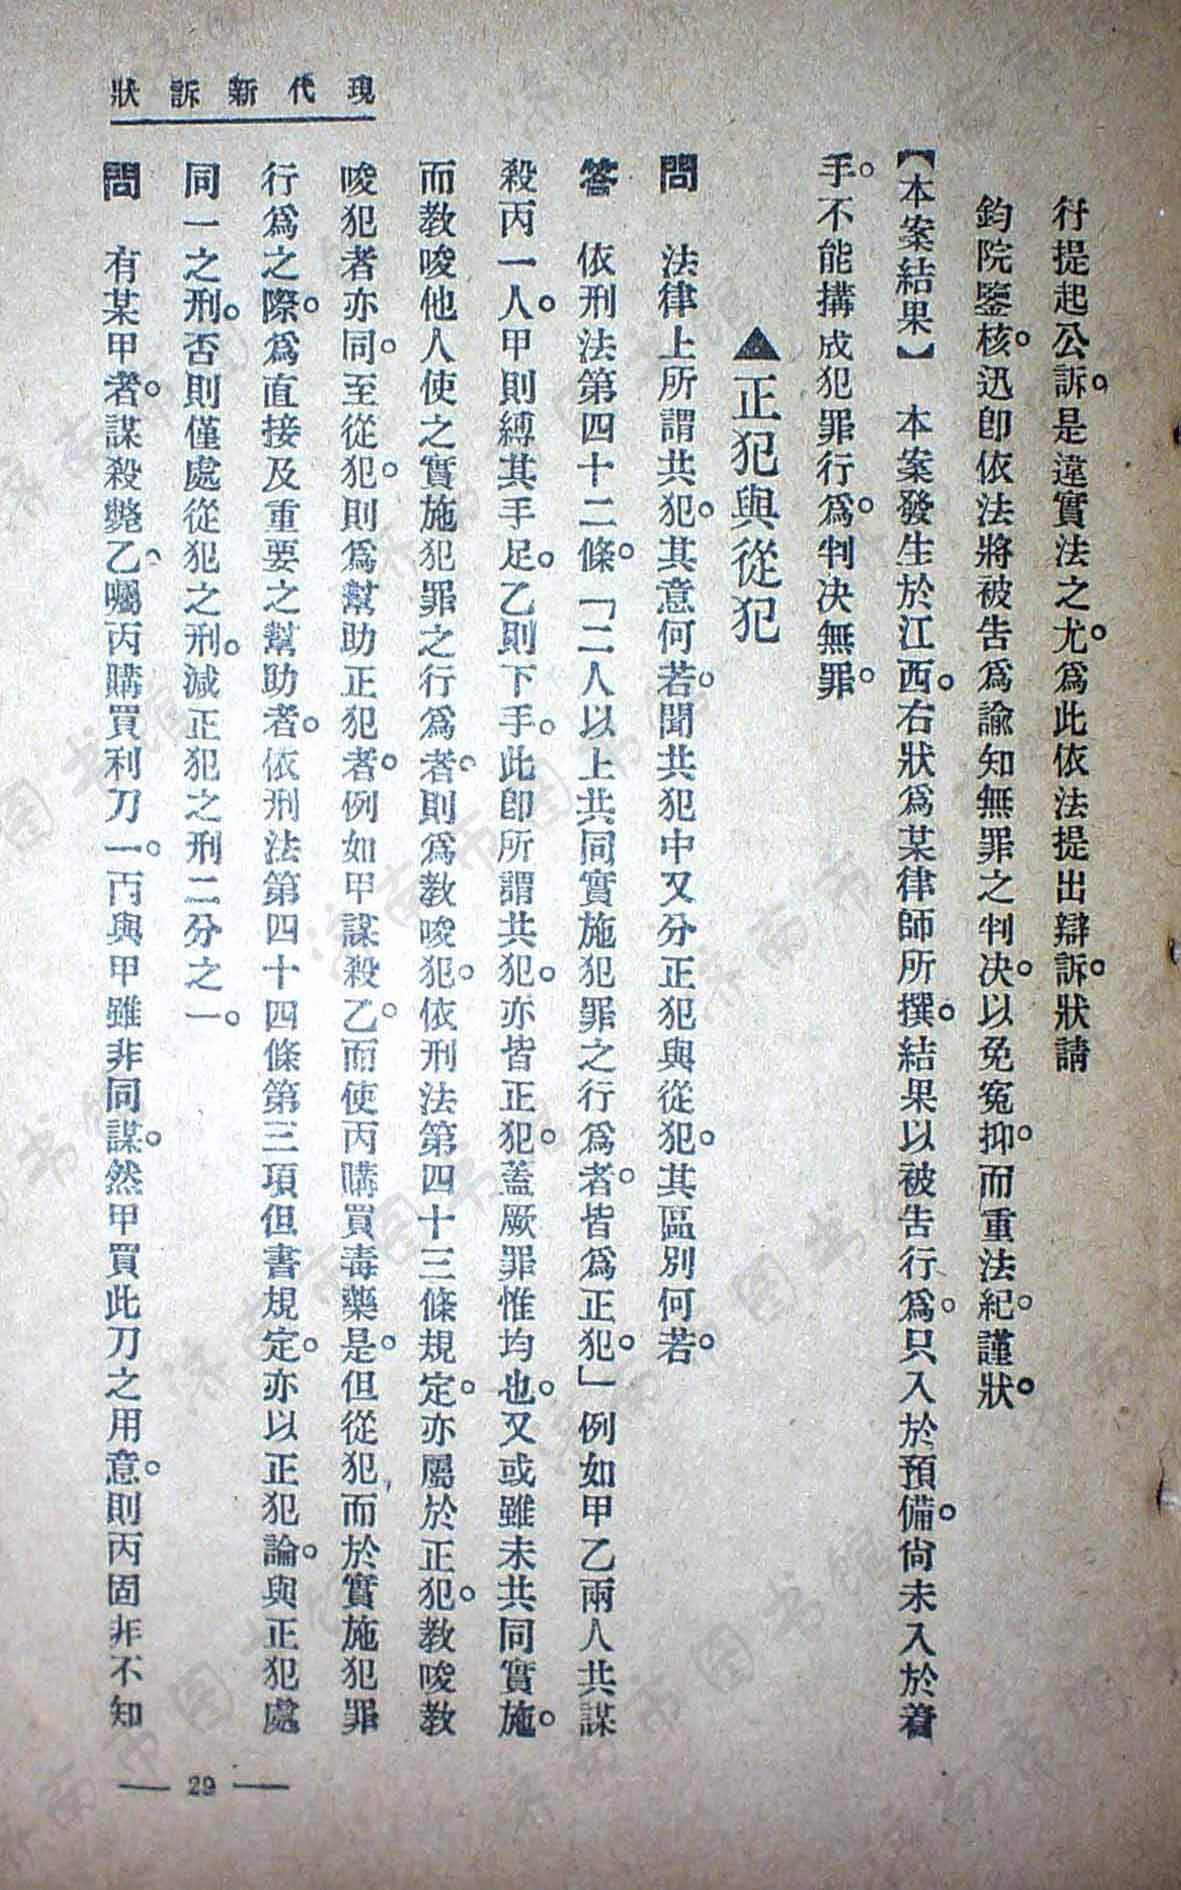 現代新訴狀
行提起公訴。是違實法之尤。爲此依法提出辯訴。狀請
鈞院鑒核。迅卽依法將被告爲諭知無罪之判决。以免寃抑。而重法紀。謹狀。
【本案結果】 本案發生於江西。右狀爲某律師所撰。結果以被告行爲。只入於預備。尙未入於着
手。不能搆成犯罪行爲。判决無罪。
▲正犯與從犯
問 法律上所謂共犯。其意何若。聞共犯中又分正犯與從犯。其區別何若。
答 依刑法第四十二條。「二人以上共同實施犯罪之行爲者。皆爲正犯。」例如甲乙兩人共謀
殺丙一人。甲則縛其手足。乙則下手。此卽所謂共犯。亦皆正犯。蓋厥罪惟均也。又或雖未共同實施。
而教唆他人使之實施犯罪之行爲者。則爲教唆犯。依刑法第四十三條規定。亦屬於正犯。教唆教
唆犯者亦同。至從犯。則爲幫助正犯者。例如甲謀殺乙。而使丙購買毒藥是。但從犯而於實施犯罪
行爲之際。爲直接及重要之幫助者。依刑法第四十四條第三項但書規定。亦以正犯論。與正犯處
同一之刑。否則僅處從犯之刑。減正犯之刑二分之一。
問 有某甲者。謀殺斃乙。囑丙購買利刀一。丙與甲雖非同謀。然甲買此刀之用意。則丙固非不知
— 29 —